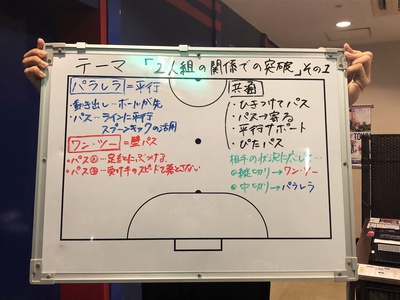 テーマ 「2人組の関係での突破」その1
パラレラ=平行
・動き出し→ボールが先
・パス→ラインに平行
スプーンキックの活用
ワン・ツー=壁パス
・パス①…足もとにぶつける
・パス②…受け手のスピードで落とさない
共通
・ひきつけてパス
・パス→寄る
・平行サポート
・ぴたパス
相手の状況に応じて…
◎縦切り→ワン・ツー
◎中切り→パラレラ